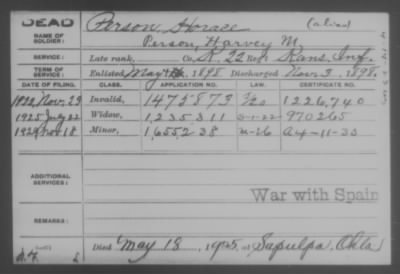 DEAD
NAME OF SOLDIER: Person, Horace (alias)
Person, Harvey M.
SERVICE: Late rank, Co. K, 22 Reg't Kans. Inf.
TERM OF SERVICE: Enlisted May 1898 Discharged Nov. 3, 1898.
DATE OF FILING. CLASS. APPLICATION NO. LAW. CERTIFICATE NO.
Nov. 29 Invalid, 1475873 1226,740
1925 July 22 Widow, 1,235,311 970265
Nov 18 Minor, 1,655,238 A-4-11-33
ADDITIONAL SERVICES:
War with Spain
REMARKS:
Died May 18, 1925, at Sapulpa, Okla